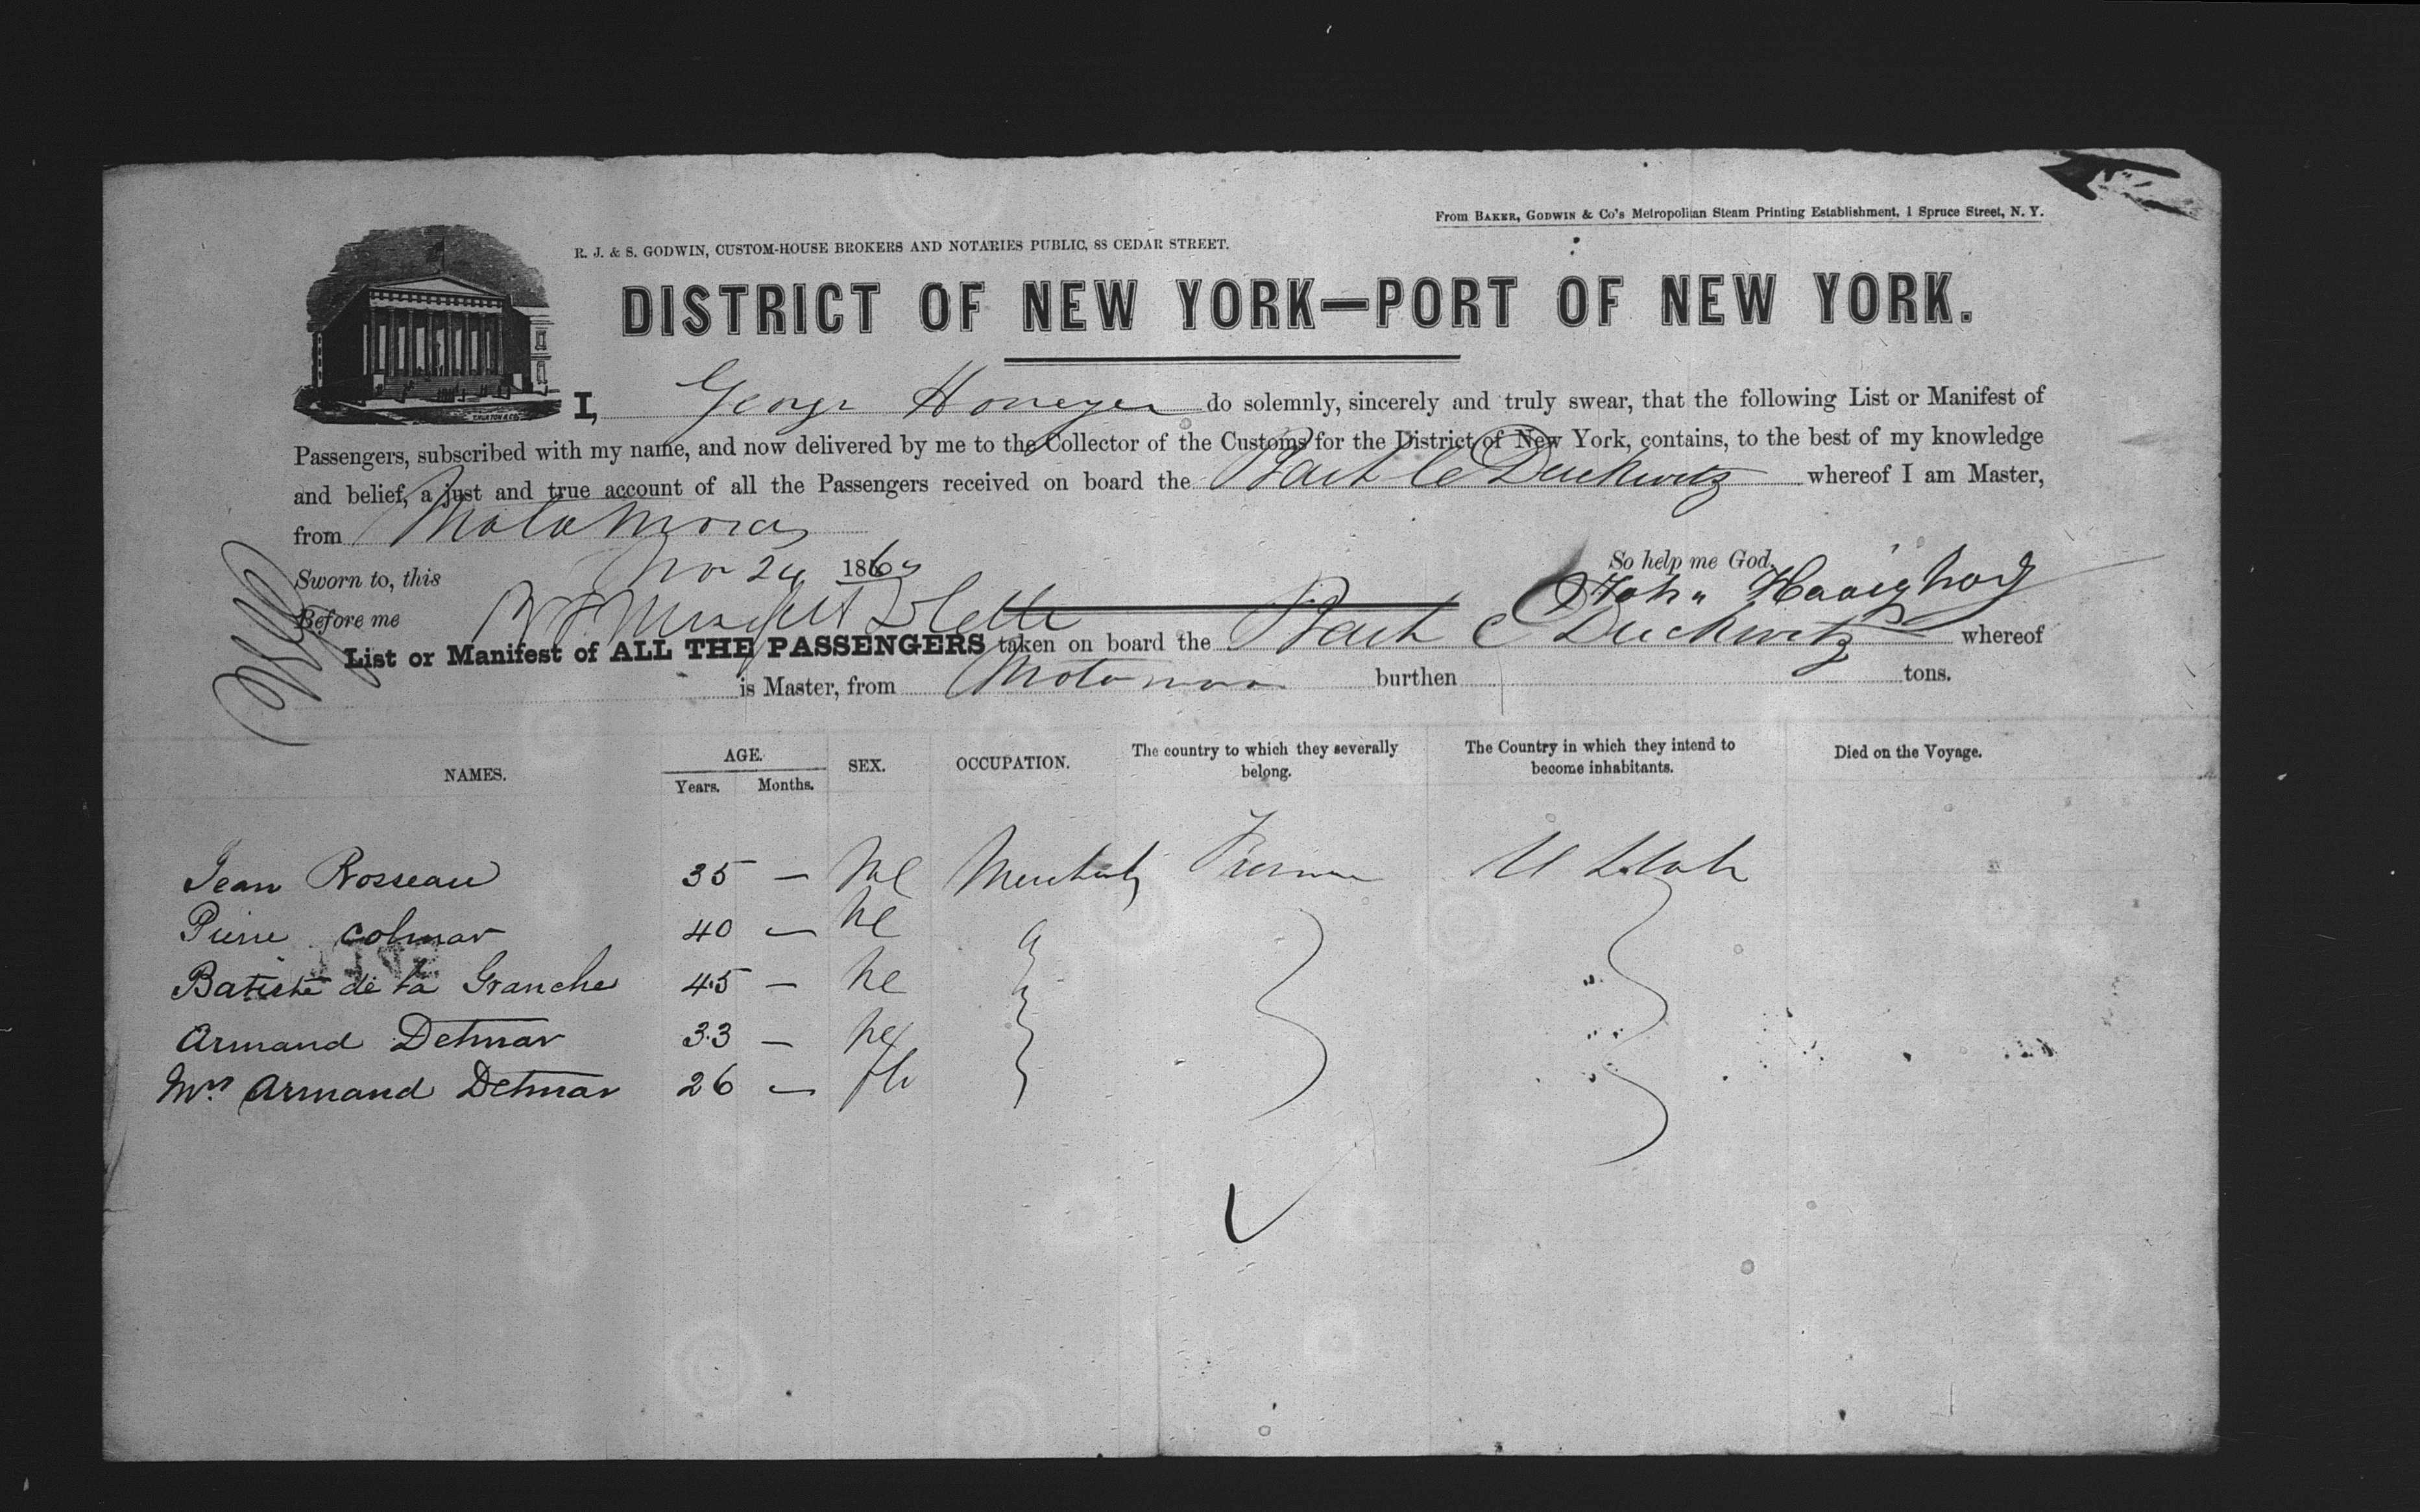 From BAKER, GODWIN & Co's Metropolitan Steam Printing Establishment, 1 Spruce Street, N. Y.
R. J. & S. GODWIN, CUSTOM-HOUSE BROKERS AND NOTARIES PUBLIC, 88 CEDAR STREET.
DISTRICT OF NEW YORK—PORT OF NEW YORK.
I, George do solemnly, sincerely and truly swear, that the following List or Manifest of
Passengers, subscribed with my name, and now delivered by me to the Collector of the Customs for the District of New York, contains, to the best of my knowledge
and belief, a just and true account of all the Passengers received on board the Bark C Duckwitz whereof I am Master,
from Matamoras
So help me God.
Sworn to, this Nov 24 186
John
Before me
List or Manifest of ALL THE PASSENGERS taken on board the Bark C Duckwitz whereof
is Master, from burthen tons.
NAMES. AGE. Years. Months. SEX. OCCUPATION. The country to which they severally belong. The Country in which they intend to become inhabitants. Died on the Voyage.
Jean Rosseau 35 — Me
Pierre Colmar 40 — Me
Batiste de la Granche 45 — Me
Armand Detmar 33 — Me
Mrs Armand Detmar 26 — fe